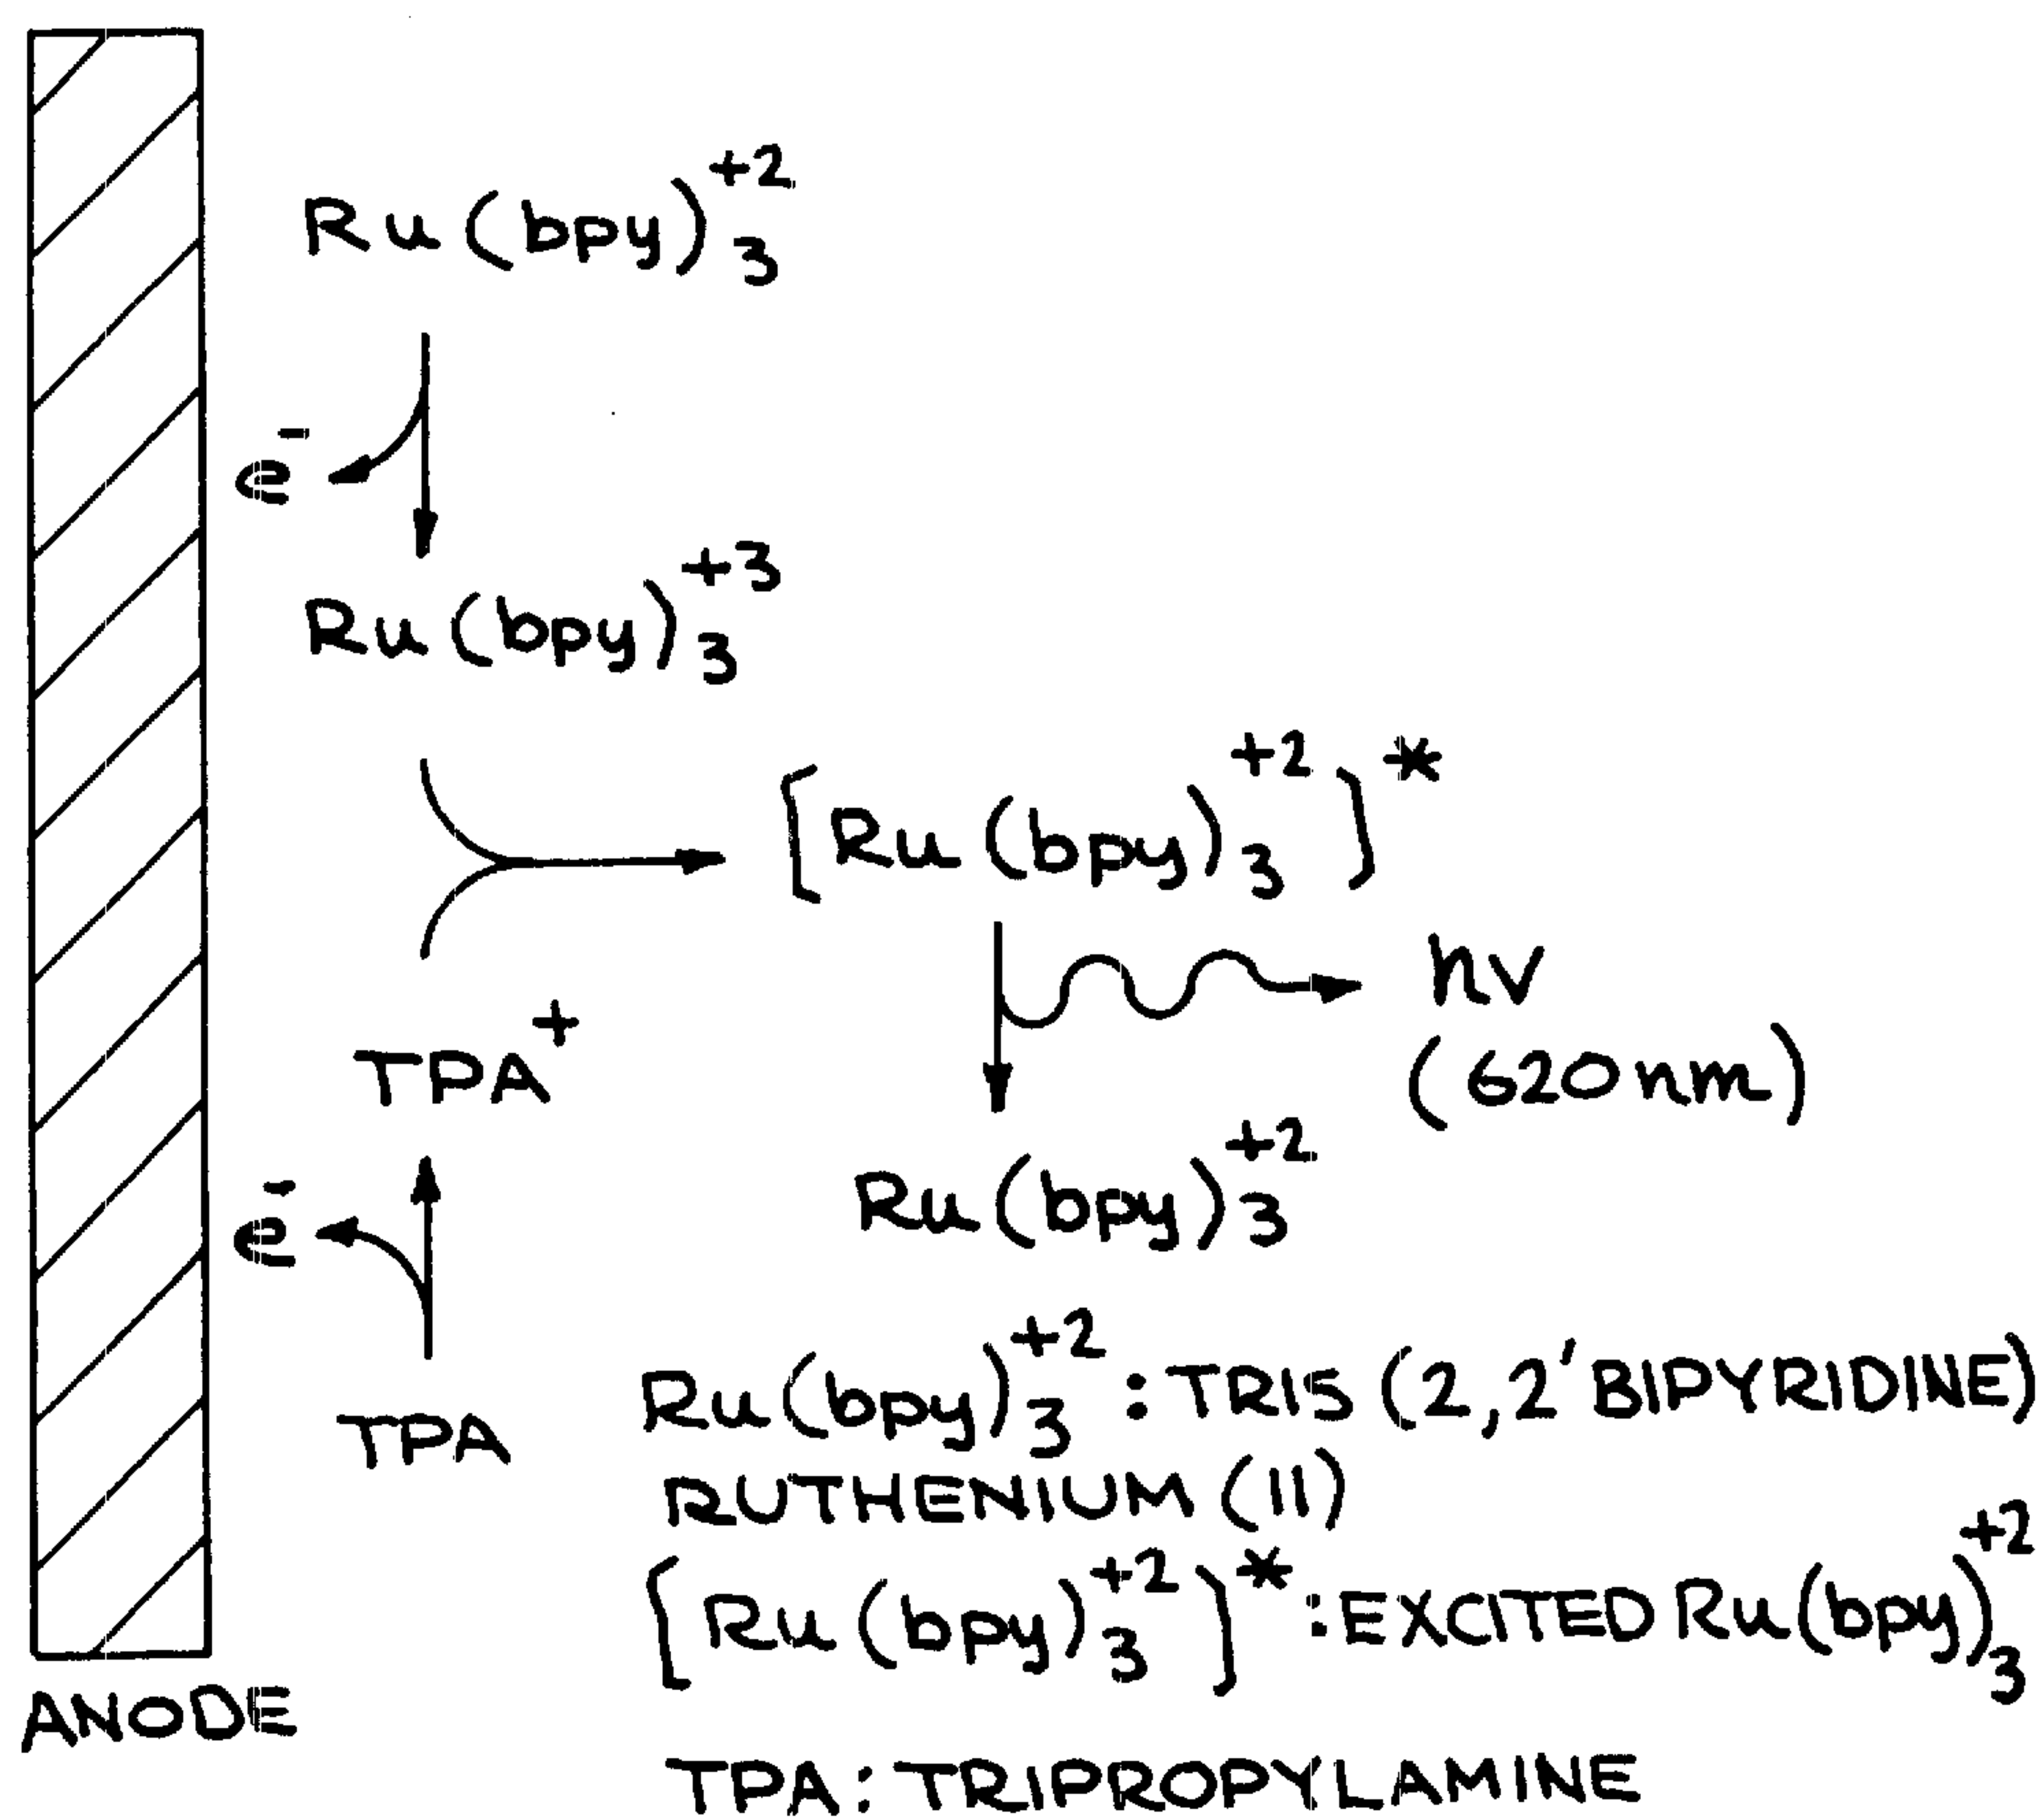 Ru(bpy)₃⁺²
e⁻
Ru(bpy)₃⁺³
[Ru(bpy)₃⁺²]*
hv
(620nm)
TPA⁺
Ru(bpy)₃⁺²
e⁻
TPA
Ru(bpy)₃⁺² : TRIS (2,2'BIPYRIDINE)
RUTHENIUM (II)
[Ru(bpy)₃⁺²]* : EXCITED Ru(bpy)₃⁺²
ANODE
TPA : TRIPROPYLAMINE